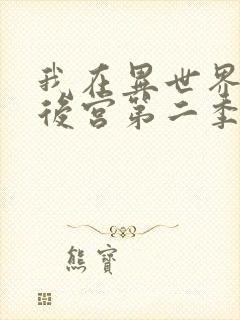 我在異世界
後宮第二季
熊寶